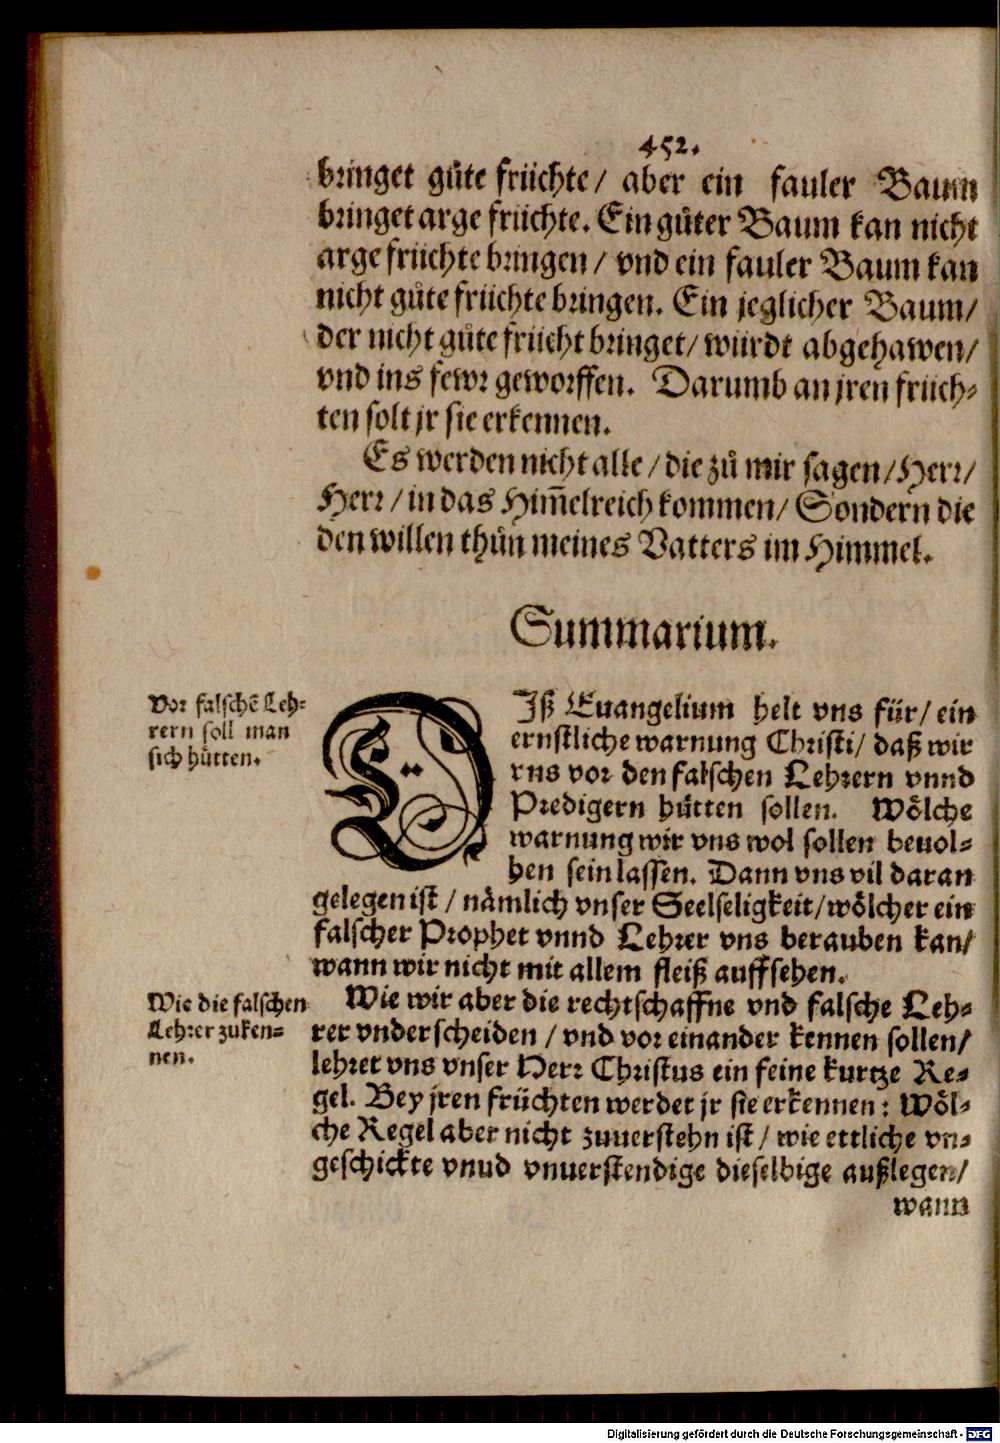 452.
bringet gůte früchte/ aber ein fauler Baum
bringet arge früchte. Ein gůter Baum kan nicht
arge früchte bringen/ vnd ein fauler Baum kan
nicht gůte früchte bringen. Ein jeglicher Baum/
der nicht gůte früćht bringet/ würdt abgehawen/
vnd ins fewr geworffen. Darumb an jren früch-
ten solt jr sie erkennen.
Es werden nicht alle/ die zů mir sagen/ Herr/
Herr/ in das Him̃elreich kommen/ Sondern die
den willen thůn meines Vatters im Himmel.
Summarium.
Vor falschẽ Leh-
rern soll man
sich hütten.
DIß Euangelium helt vns für/ ein
ernstliche warnung Christi/ daß wir
vns vor den falschen Lehrern vnnd
Predigern hütten sollen. Wölche
warnung wir vns wol sollen beuol-
hen sein lassen. Dann vns vil daran
gelegen ist/ nämlich vnser Seelseligkeit/ wölcher ein
falscher Prophet vnnd Lehrer vns berauben kan/
wann wir nicht mit allem fleiß auffsehen.
Wie die falschen
Lehrer zuken-
nen.
Wie wir aber die rechtschaffne vnd falsche Leh-
rer vnderscheiden/ vnd vor einander kennen sollen/
lehret vns vnser Herr Christus ein feine kurtze Re-
gel. Bey jren früchten werdet jr sie erkennen: Wöl-
che Regel aber nicht zuuerstehn ist/ wie ettliche vn-
geschickte vnud vnuerstendige dieselbige außlegen/
wann
Digitalisierung gefördert durch die Deutsche Forschungsgemeinschaft - DFG